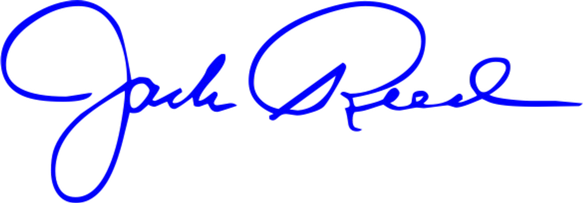 Jack Reed